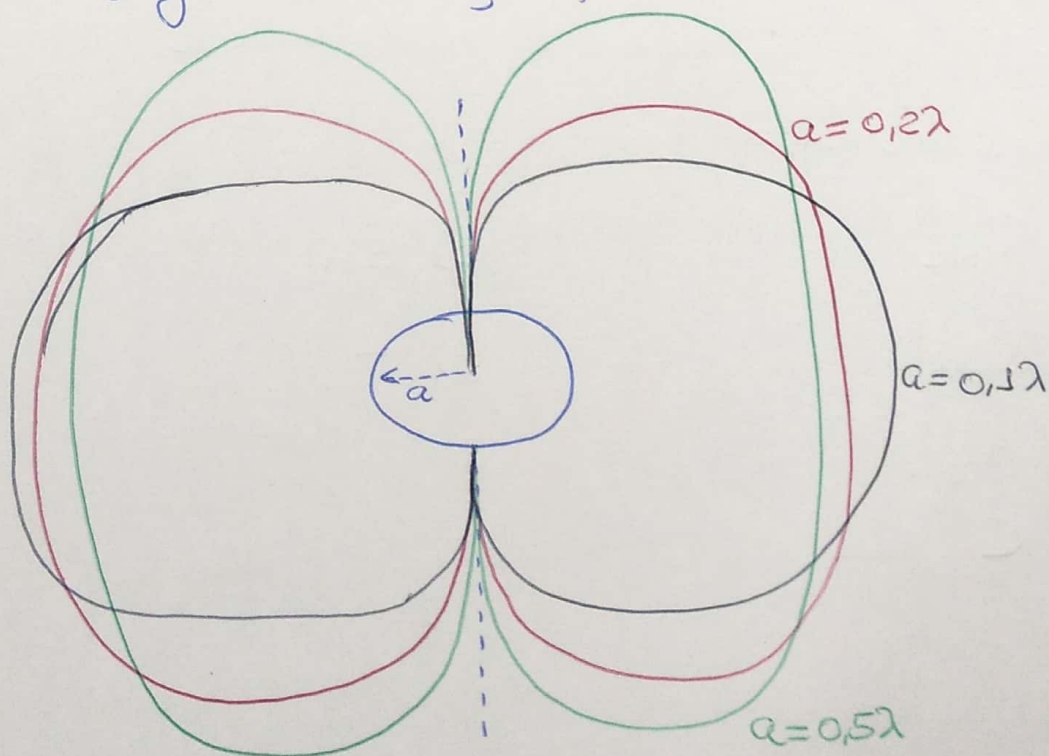 a = 0,2λ
a = 0,1λ
a
a = 0,5λ